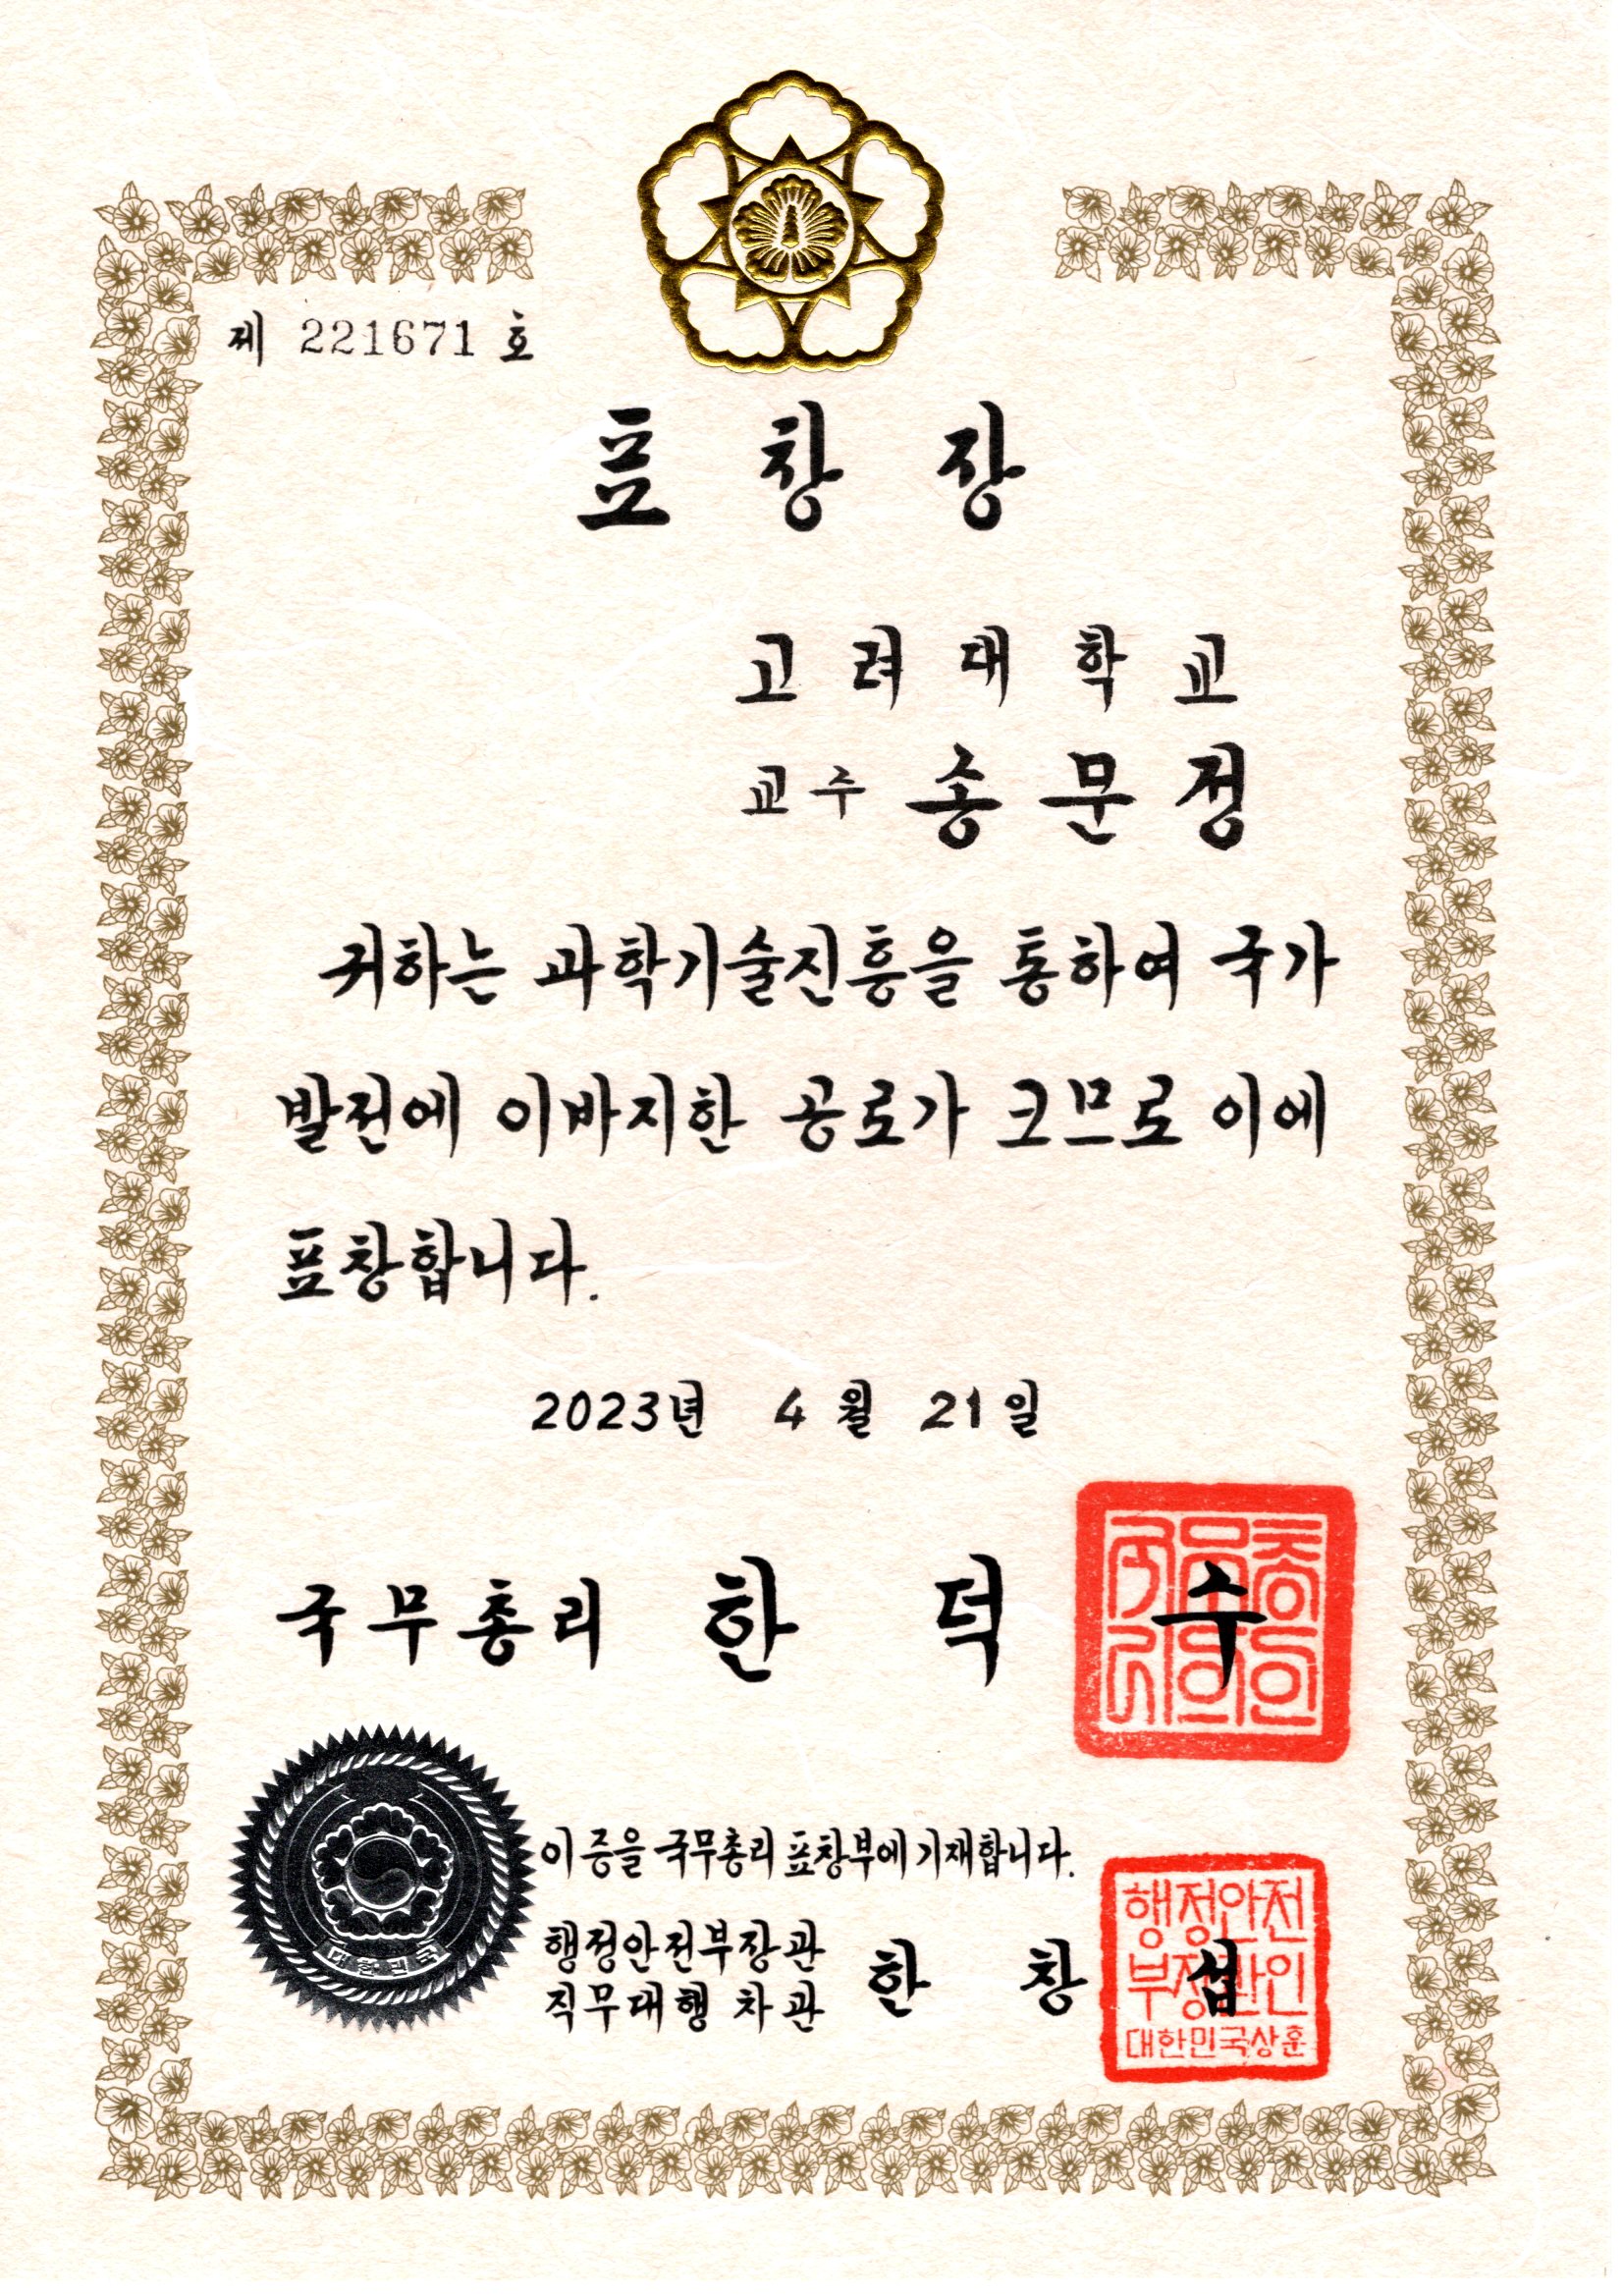 제 221671 호
표 창 장
고 려 대 학 교
교수 송 문 정
귀하는 과학기술진흥을 통하여 국가
발전에 이바지한 공로가 크므로 이에
표창합니다.
2023년 4월 21일
국무총리 한 덕 수
이 증을 국무총리 표창부에 기재합니다.
행정안전부장관
직무대행 차관 한 창 섭
행정안전
부장관인
대한민국상훈
대한민국